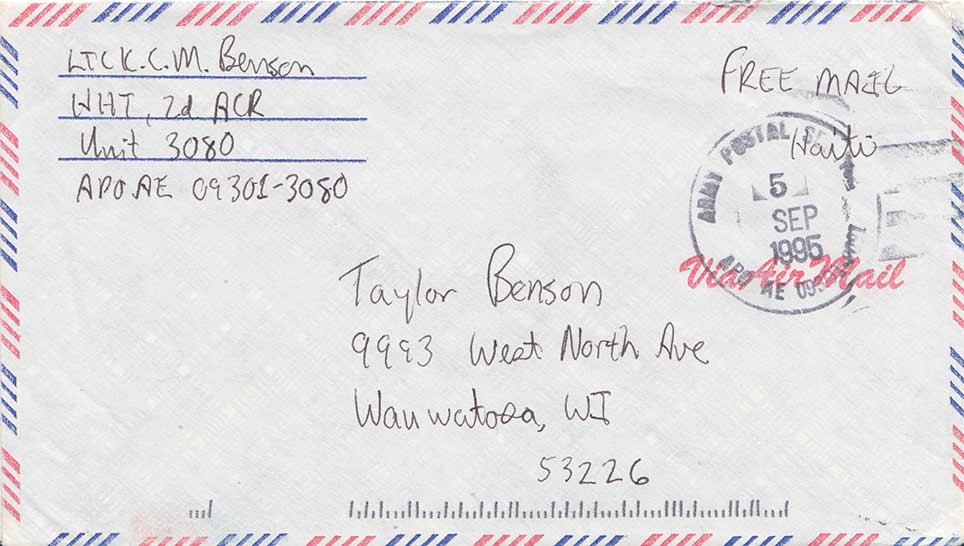 LTC K.C.M. Benson
HHT, 2d ACR
Unit 3080
APO AE 09301-3080
FREE MAIL
Haiti
ARMY POSTAL
5
SEP
1995
APO AE
Via Air Mail
Taylor Benson
9993 West North Ave
Wauwatosa, WI
53226